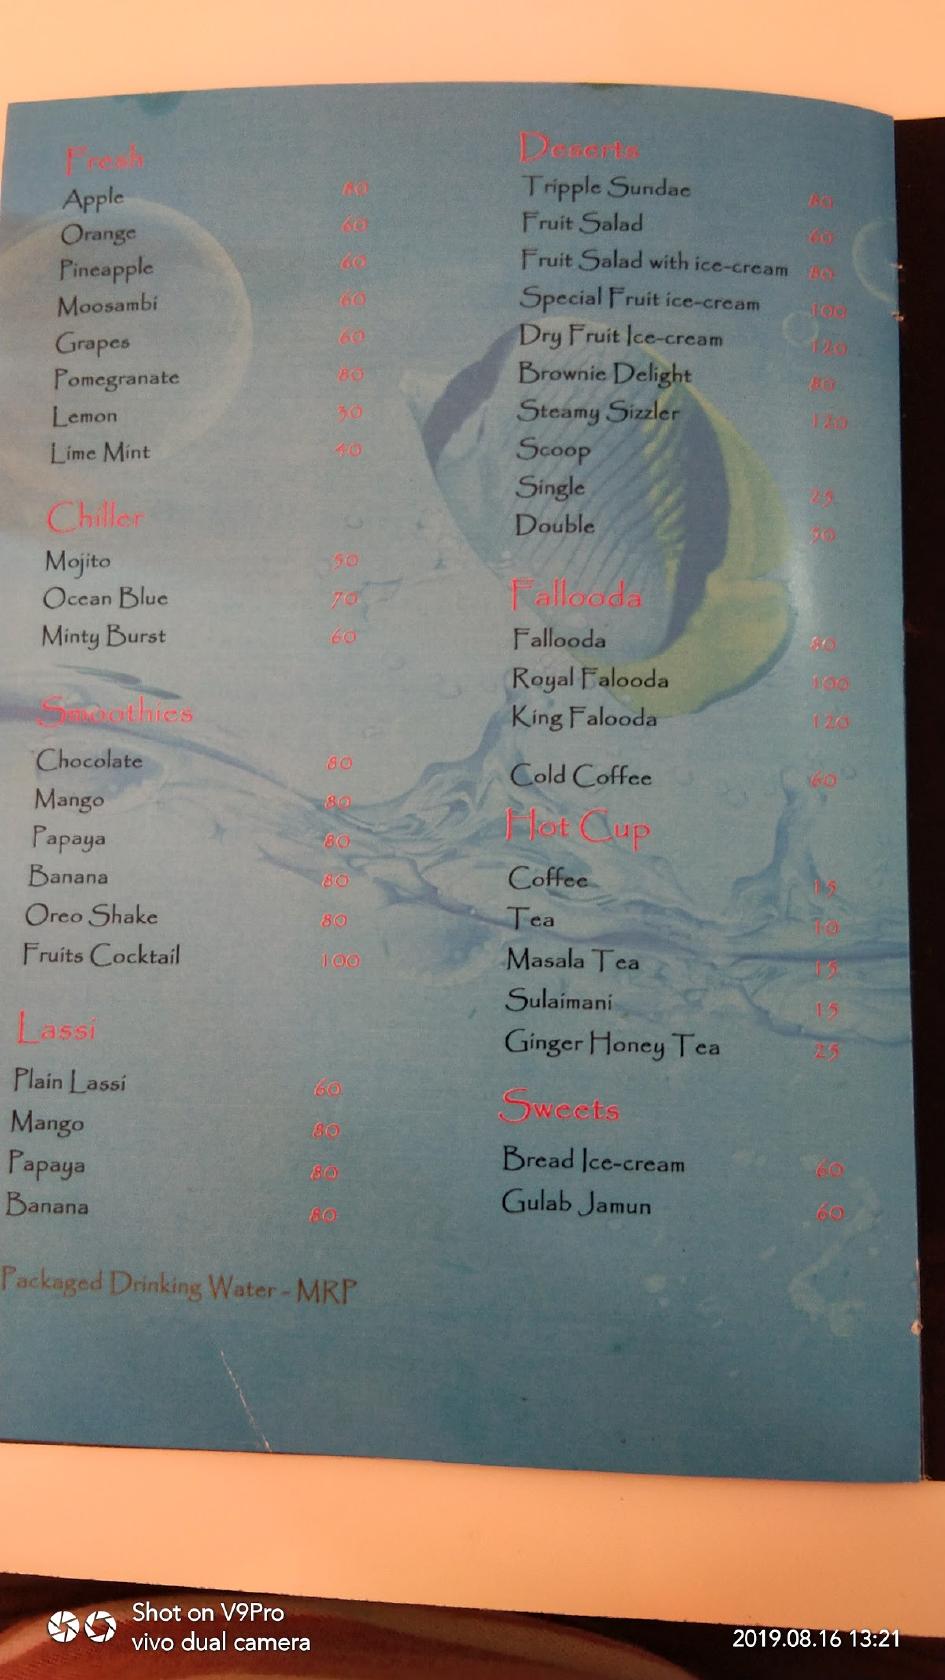 Fresh
Apple 80
Orange 60
Pineapple 60
Moosambi 60
Grapes 60
Pomegranate 80
Lemon 30
Lime Mint 40
Chiller
Mojito 50
Ocean Blue 70
Minty Burst 60
Smoothies
Chocolate 80
Mango 80
Papaya 80
Banana 80
Oreo Shake 80
Fruits Cocktail 100
Lassi
Plain Lassi 60
Mango 80
Papaya 80
Banana 80
Packaged Drinking Water - MRP
Deserts
Tripple Sundae 80
Fruit Salad 60
Fruit Salad with ice-cream 80
Special Fruit ice-cream 100
Dry Fruit Ice-cream 120
Brownie Delight 80
Steamy Sizzler 120
Scoop
Single 25
Double 50
Fallooda
Fallooda 80
Royal Falooda 100
King Falooda 120
Cold Coffee 60
Hot Cup
Coffee 15
Tea 10
Masala Tea 15
Sulaimani 15
Ginger Honey Tea 25
Sweets
Bread Ice-cream 60
Gulab Jamun 60
Shot on V9Pro
vivo dual camera
2019.08.16 13:21